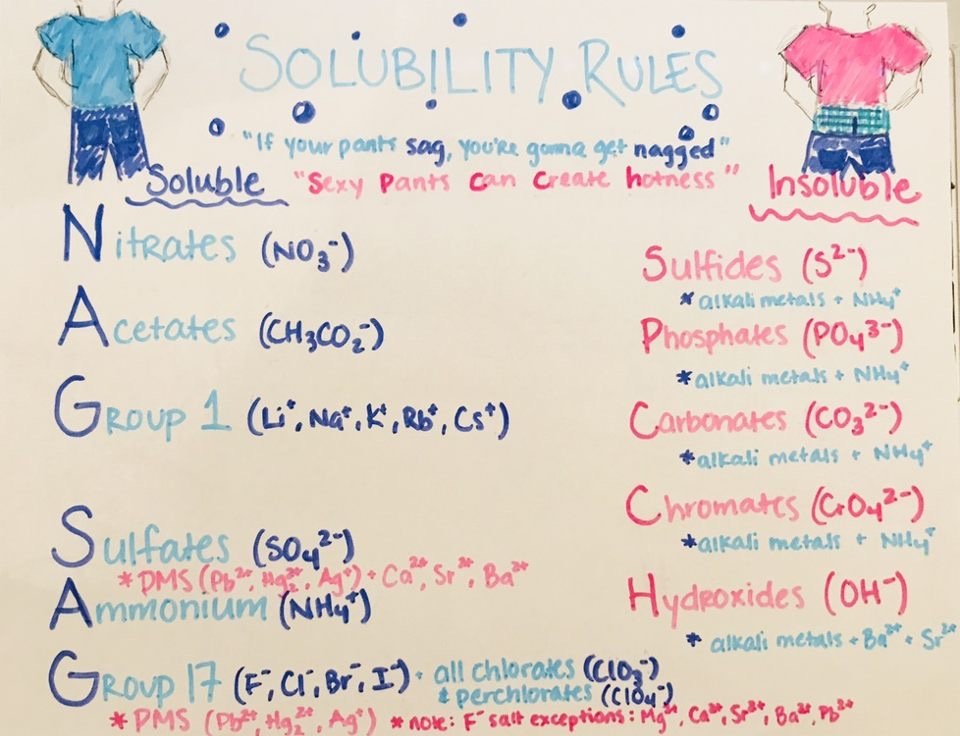 SOLUBILITY RULES
"If your pants sag, you're gonna get nagged"
"Sexy Pants Can Create hotness"
Soluble
Nitrates (NO₃⁻)
Acetates (CH₃CO₂⁻)
Group 1 (Li⁺, Na⁺, K⁺, Rb⁺, Cs⁺)
Sulfates (SO₄²⁻)
*PMS (Pb²⁺, Hg₂²⁺, Ag⁺) + Ca²⁺, Sr²⁺, Ba²⁺
Ammonium (NH₄⁺)
Group 17 (F⁻, Cl⁻, Br⁻, I⁻) + all chlorates (ClO₃⁻)
+ perchlorates (ClO₄⁻)
*PMS (Pb²⁺, Hg₂²⁺, Ag⁺) *note: F⁻ salt exceptions: Mg²⁺, Ca²⁺, Sr²⁺, Ba²⁺, Pb²⁺
Insoluble
Sulfides (S²⁻)
*alkali metals + NH₄⁺
Phosphates (PO₄³⁻)
*alkali metals + NH₄⁺
Carbonates (CO₃²⁻)
*alkali metals + NH₄⁺
Chromates (CrO₄²⁻)
*alkali metals + NH₄⁺
Hydroxides (OH⁻)
* alkali metals + Ba²⁺ + Sr²⁺